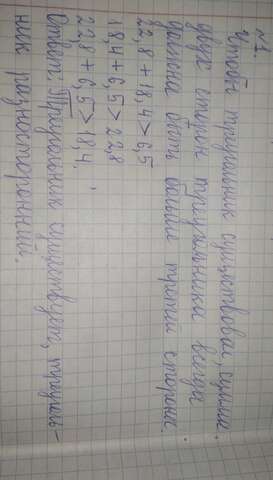 №1.
Чтобы треугольник существовал, сумма
двух сторон треугольника всегда
должна быть больше третьей стороны.
22,8 + 18,4 > 6,5
18,4 + 6,5 > 22,8
22,8 + 6,5 > 18,4.
Ответ: Треугольник существует, треуголь-
ник разносторонний.